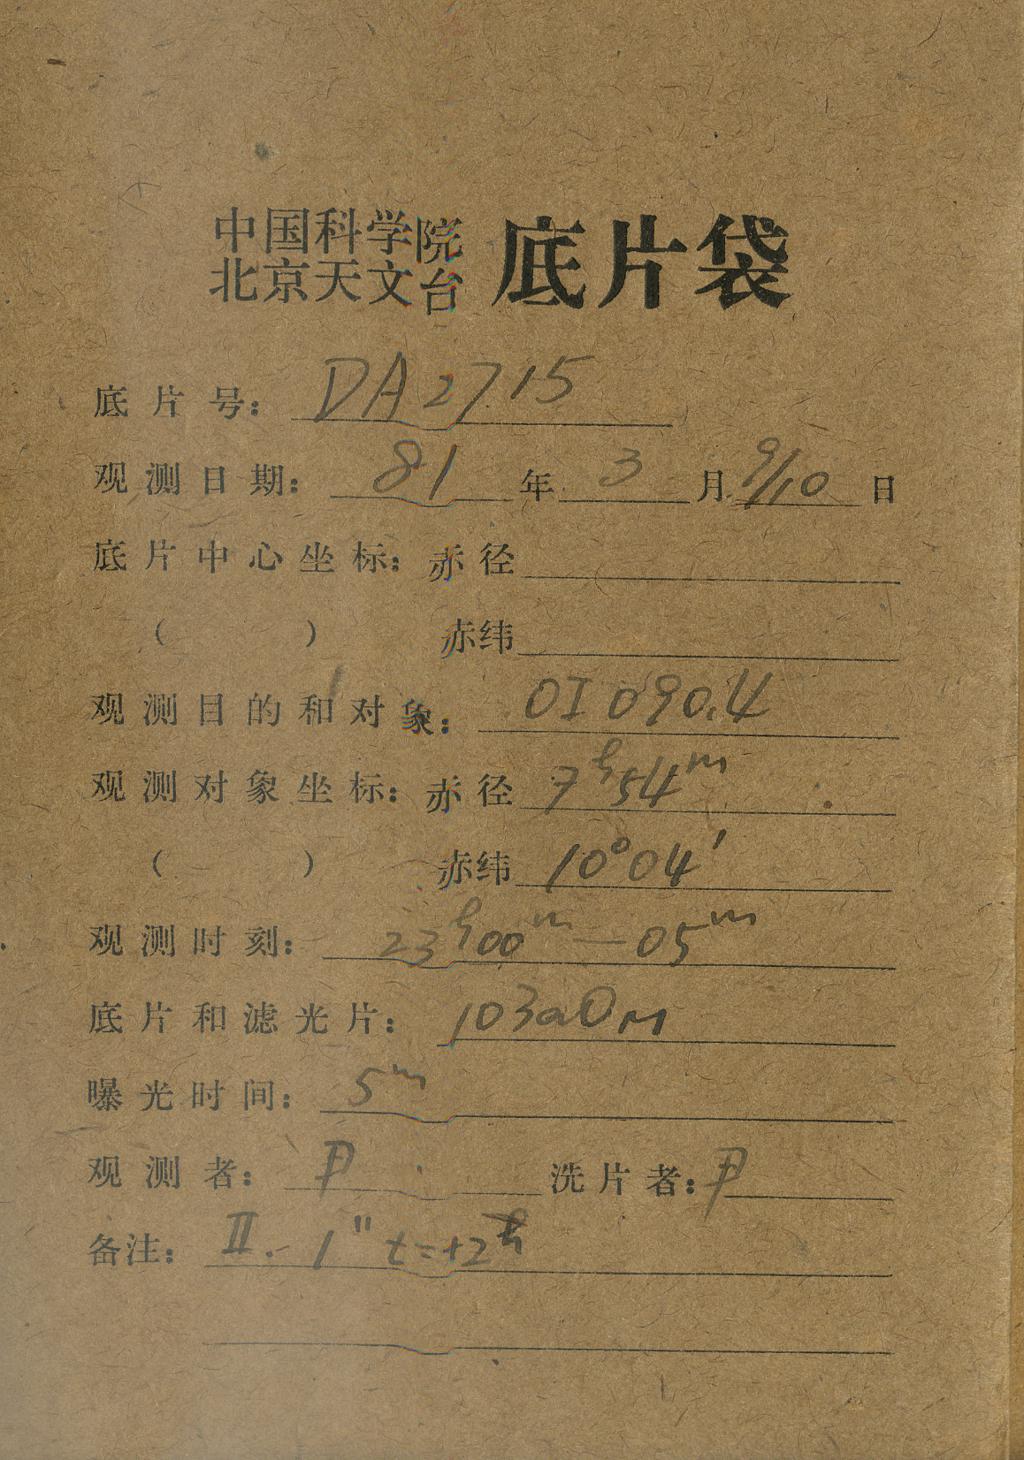 中国科学院
北京天文台 底片袋
底片号： DA2715
观测日期： 81 年 3 月 9/10 日
底片中心坐标：赤径
（ ） 赤纬
观测目的和对象： OI 090.4
观测对象坐标：赤径 7h54m
（ ） 赤纬 10°04′
观测时刻： 23h00m—05m
底片和滤光片： 103aO
曝光时间： 5m
观测者： 洗片者：
备注： II. 1" t=+2h